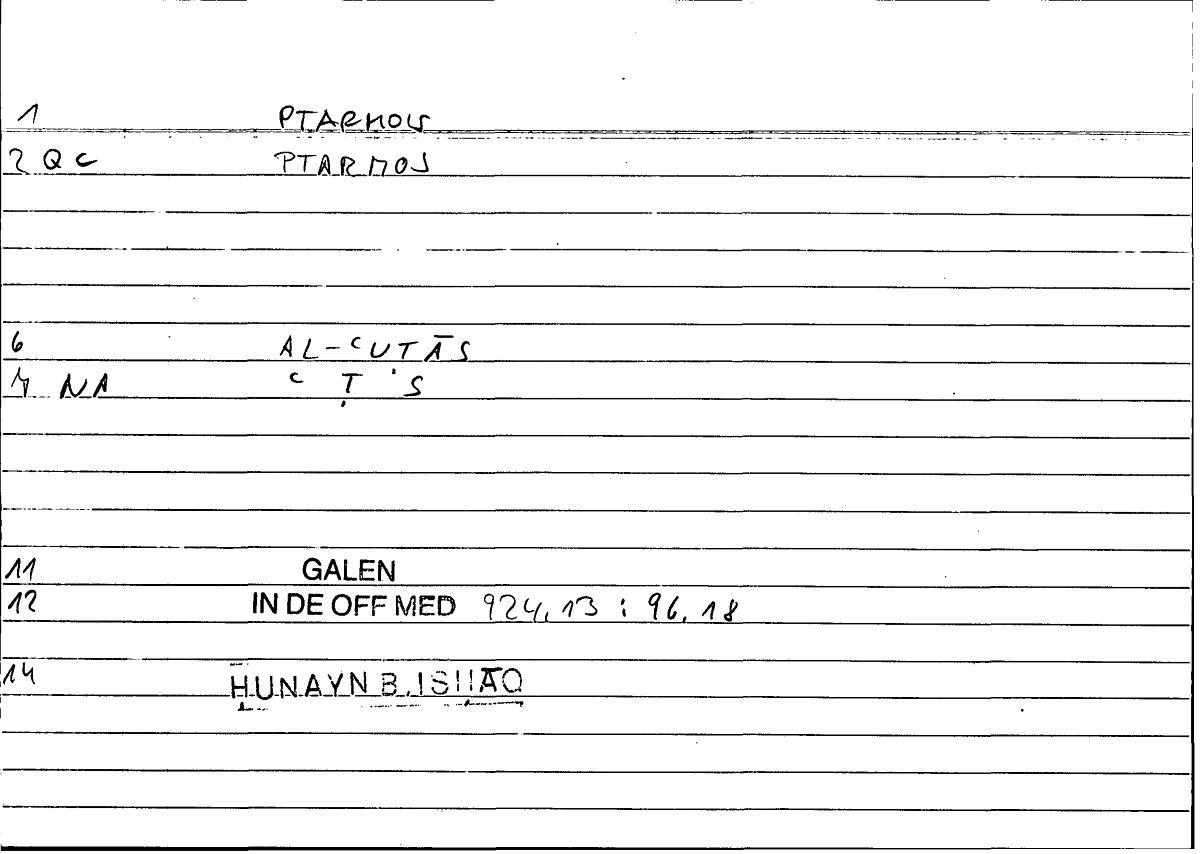 1 PTARMOUS
2 QC PTARMOS
6 AL-ʿUTĀS
7 NA ʿ Ṭ ' S
11 GALEN
12 IN DE OFF MED 924,13 : 96,18
14 ḤUNAYN B. ISḤĀQ